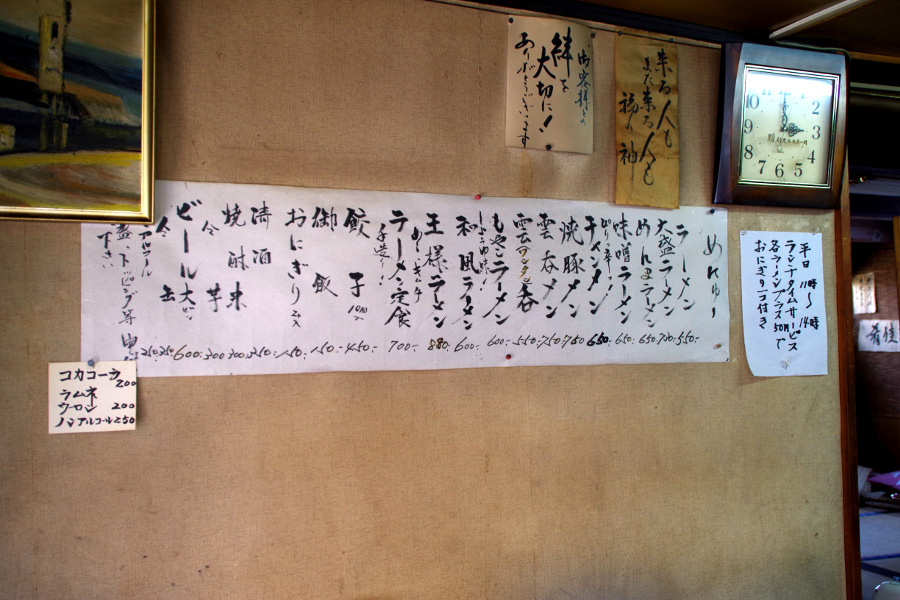 御客様との
絆を
大切に!
ありがとうございます
来る人も
また来る人も
福の神
10
2
9
3
8
4
7
6
5
めにゅー
ラーメン 550.-
大盛ラーメン 700.-
めんまラーメン 650.-
味噌ラーメン 650.-
ぴりっ辛!
チャンメン 650.-
焼豚メン 750.-
雲呑メン 750.-
雲呑 550.-
ワンタン
もやしラーメン 600.-
しょうゆ味!
和風ラーメン 600.-
王様ラーメン 880.-
ラーメン定食 700.-
手造り!
餃子 450.-
御飯 150.-
おにぎり 2コ入 150.-
清酒 250.-
焼酎 米 300.-
〃 芋 300.-
ビール 大ビン 600.-
〃 缶
アルコール
下さい
平日 11時〜14時
ランチタイムサービス
各ラーメンプラス50円で
おにぎり一つ付き
コカコーラ 200
ラムネ
ウーロン 200
ノンアルコール 250